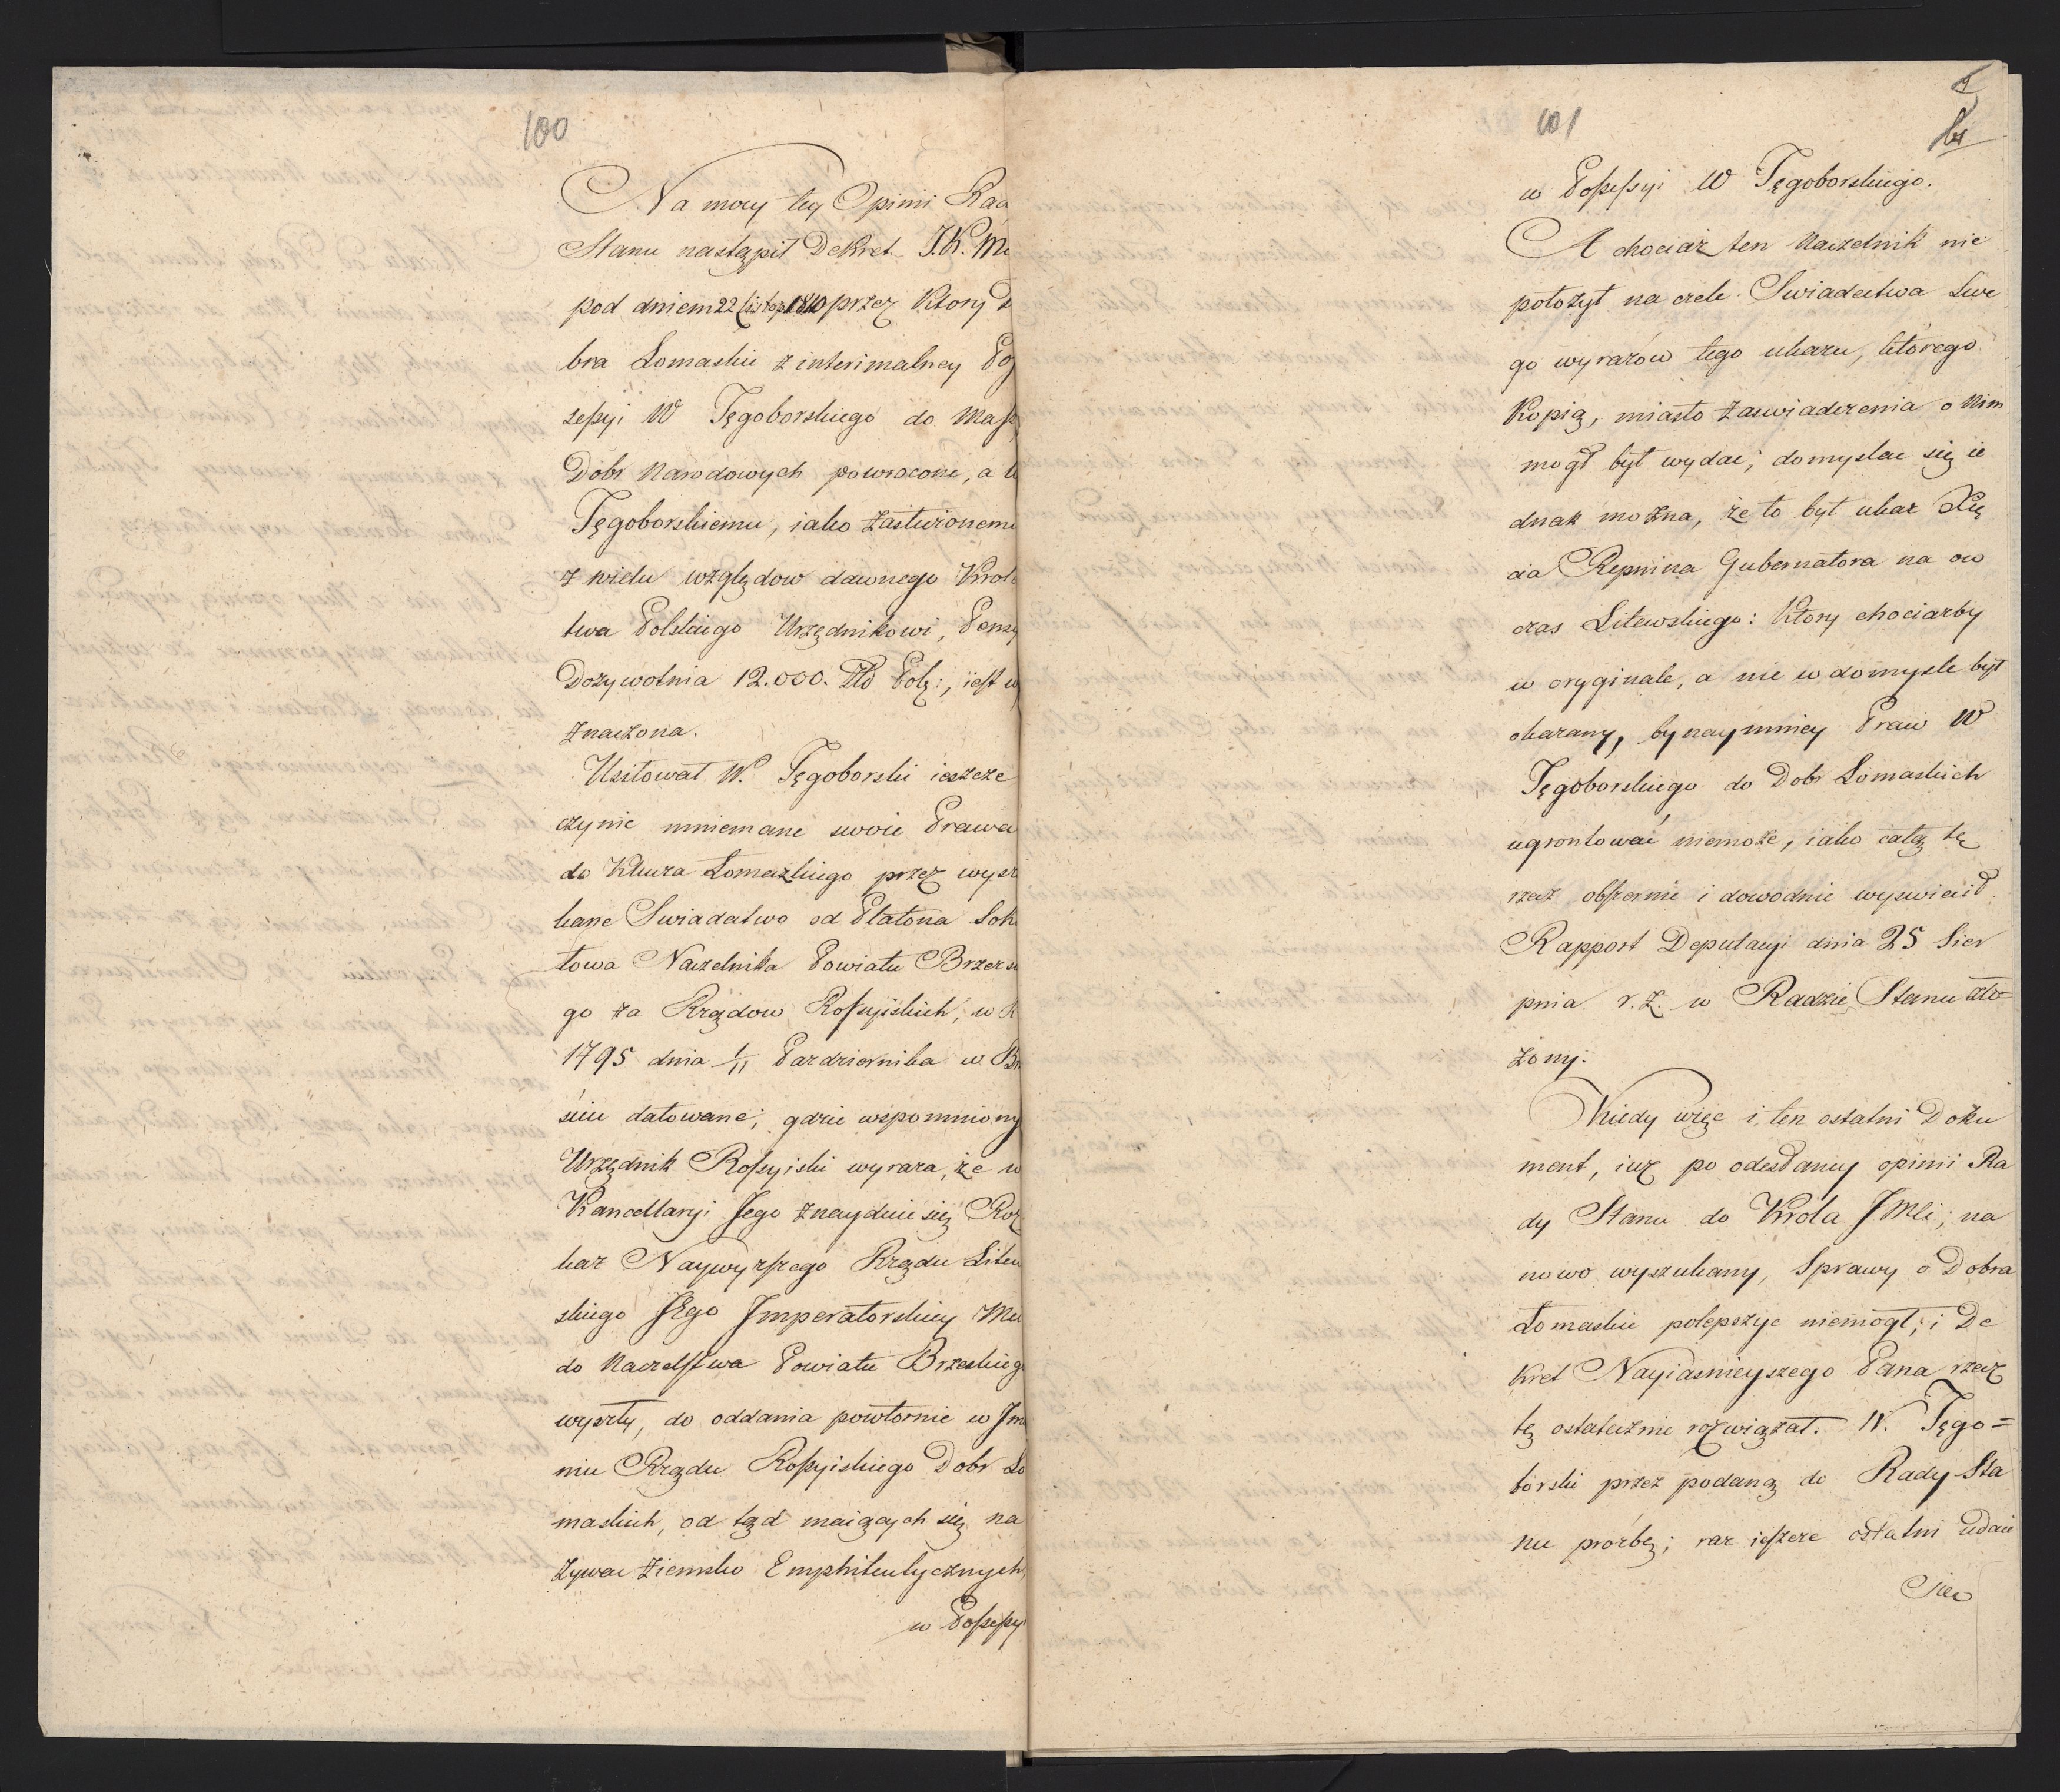 100
Na mocy tey Opinii Rad
Stanu nastąpił Dekret J.K. M
pod dniem 22 Listop 1810 przez Ktory D
bra Łomaskie z interimalney Po
zeſsyi W Tęgoborskiego do Maſs
Dobr Narodowych powrocone, a W
Tęgoborskiemu, iako Zasłużonemu
z wielu względow dawnego Krole
twa Polskiego Urzędnikowi, Pensy
Dozywotnia 12.000. Złł Pols:, ieſt w
znaczona.
Usiłował W. Tęgoborski ieszcze
czynic mniemane swoie Prawa
do Klucza Łomazkiego przez wysz
kane Swiadectwo od Platona Sok
łowa Naczelnika Powiatu Brzesk
go za Rządow Roſsyiskich, w R
1795 dnia 1/11 Pazdziernika w Brz
sciu datowane; gdzie wspomniony
Urzędnik Roſsyiski wyraza, że w
Kancellaryi Jego znayduie się Roz
kaz Naywyżſzego Rządu Litew
skiego JEgo Jmperatorskiey Mci
do Naczelſtwa Powiatu Brzeskiego
wyszły, do oddania powtornie w Jmi
niu Rządu Roſsyiskiego Dobr Ło
maskich, od tąd maiących się na
zywac Ziemsko Emphiteutycznych,
w Poſseſsyi
101
w Poſseſsyi W Tęgoborskiego.
A chociaż ten Naczelnik nie
położył na czele Swiadectwa Swe
go wyrazów tego ukazu, którego
Kopią, miasto Zaswiadczenia o nim
mogł był wydac; domyslac się ie
dnak można, że to był ukaz Xię
cia Repnina Gubernatora na ow
czas Litewskiego: Ktory chociazby
w oryginale, a nie w domysle był
okazany, bynaymniey Praw W
Tęgoborskiego do Dobr Łomaskich
ugrontować niemoże, iako całą tę
rzecz obſzernie i dowodnie wyswiecił
Rapport Deputacyi dnia 25 Sier
pnia r.z. w Radzie Stanu zło=
żony.
Kiedy więc i ten ostatni Doku
ment, iuż po odesłaney opinii Ra
dy Stanu do Krola JMci; na
nowo wyszukany, Sprawy o Dobra
Łomaskie polepszyc niemogł; i De
kret Nayiasnieyszego Pana rzecz
tę ostatecznie rozwiązał. W. Tęgo=
borski przez podaną do Rady Sta
nu prozbę; raz ieſzcze ostatni udaie
Się